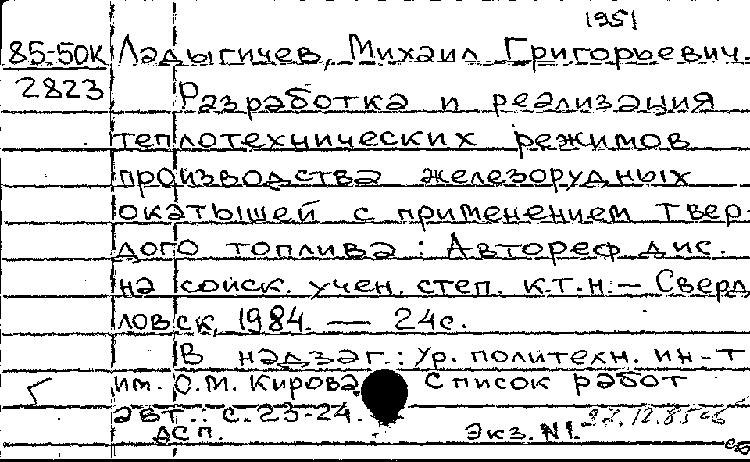 1951
85-50К Ладыгичев, Михаил Григорьевич.
2823 Разработка и реализация
теплотехнических режимов
производства железорудных
окатышей с применением твер-
дого топлива : Автореф. дис.
на соиск. учен. степ. к.т.н. — Сверд
ловск, 1984. — 24с.
В надзаг.: Ур. политехн. ин-т
им. С.М. Кирова. Список работ
авт.: с. 23-24.
ДСП. Экз. N1. 27.12.85